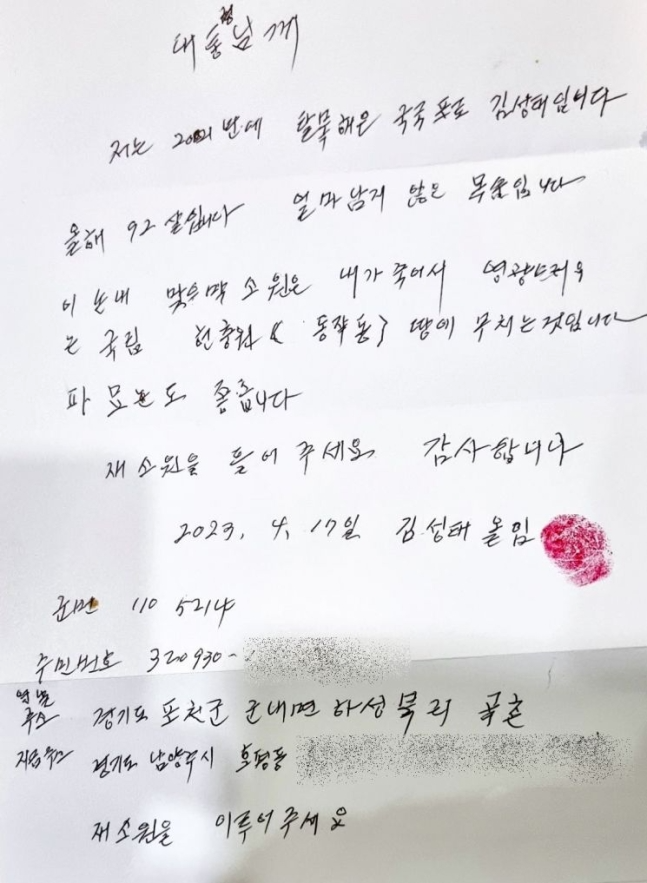 대통령님께
저는 2001번에 탈북해온 국국포로 김성태입니다
올해 92살입니다 얼마남지 않은 목숨입니다
이 눈내 맞으막 소원은 내가 죽어서
는 국립 현충원 ( 동작동) 땅에 무치는것입니다
파묘는도 좋습니다
재소원을 들어 주세요 감사합니다
2023. 4. 17일 김성태 올림
군번 1105214
주민번호 320930-
주소 경기도 포천군 군내면 하성북리
지금주소 경기도 남양주시 호평동
재소원을 이루어주세요